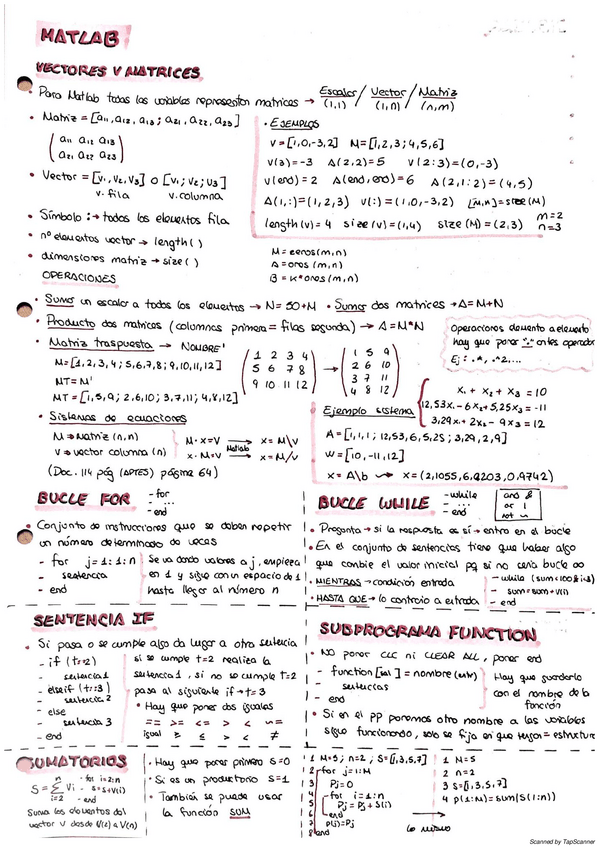 MATLAB
VECTORES Y MATRICES
• Para Matlab todas las variables representan matrices → Escalar (1,1) / Vector (1,n) / Matriz (n,m)
• Matriz = [a11, a12, a13; a21, a22, a23]
( a11 a12 a13
a21 a22 a23 )
• Vector = [v1, v2, v3] o [v1; v2; v3]
v. fila v. columna
• Símbolo : → todos los elementos fila
• nº elementos vector → length( )
• dimensiones matriz → size( )
• EJEMPLOS
V=[1,0,-3,2] M=[1,2,3;4,5,6]
V(3)=-3 A(2,2)=5 V(2:3)=(0,-3)
V(end)=2 A(end,end)=6 A(2,1:2)=(4,5)
A(1,:)=(1,2,3) V(:)=(1,0,-3,2) [m,n]=size(M)
length(v)=4 size(v)=(1,4) size(M)=(2,3) m=2
n=3
M=zeros(m,n)
A=ones(m,n)
B=K*ones(m,n)
OPERACIONES
• Sumar un escalar a todos los elementos → N=50+M • Sumar dos matrices → A=M+N
• Producto dos matrices (columnas primera = filas segunda) → A=M*N
• Matriz traspuesta → NOMBRE'
M=[1,2,3,4;5,6,7,8;9,10,11,12]
MT=M'
MT=[1,5,9;2,6,10;3,7,11;4,8,12]
( 1 2 3 4
5 6 7 8
9 10 11 12 )
→
( 1 5 9
2 6 10
3 7 11
4 8 12 )
Operaciones elemento a elemento
hay que poner "." antes operador
Ej: .*, .^2,...
• Sistemas de ecuaciones
M → Matriz (n,n)
V → vector columna (n)
M·x=V → Matlab x=M\V
x·M=V → x=M/V
(Doc. 114 pág (APTES) página 64)
Ejemplo sistema
x1 + x2 + x3 = 10
12,53x1 - 6x2 + 5,25x3 = -11
3,29x1 + 2x2 - 9x3 = 12
A=[1,1,1;12,53,6,5,25;3,29,2,9]
W=[10,-11,12]
x=A\b → x=(2,1055,6,9203,0,9742)
BUCLE FOR
- for
- ...
- end
• Conjunto de instrucciones que se deben repetir
un número determinado de veces
- for j=1:1:n
- sentencia
- end
Se va dando valores a j, empieza
en 1 y sigue con un espacio de 1
hasta llegar al número n
BUCLE WHILE
- while
- ...
- end
and &
or |
not ~
• Pregunta → si la respuesta es sí → entro en el bucle
• En el conjunto de sentencias tiene que haber algo
que cambie el valor inicial pq si no sería bucle ∞
• MIENTRAS → condición entrada
• HASTA QUE → lo contrario a entrada
- sum=sum+v(i)
- end
SENTENCIA IF
• Si pasa o se cumple algo da lugar a otra sentencia
- if (t==2)
sentencia1
- elseif (t==3)
sentencia 2
- else
sentencia 3
- end
si se cumple t=2 realiza la
sentencia1, si no se cumple t=2
pasa al siguiente if → t=3
• Hay que poner dos iguales
== >= <= > < ~=
igual ≥ ≤ > < ≠
SUBPROGRAMA FUNCTION
• NO poner CLC ni CLEAR ALL, poner end
- function [sal] = nombre (entr)
- sentencias
- end
Hay que guardarlo
con el nombre de la
función
• Si en el PP ponemos otro nombre a las variables
sigue funcionando, solo se fija en que tengan = estructura
SUMATORIOS
S = Σ Vi
n
i=2
- for i=2:n
- s=s+v(i)
- end
Suma los elementos del
vector V desde V(2) a V(n)
• Hay que poner primero S=0
• Si es un productorio S=1
• También se puede usar
la función SUM
1 M=5; n=2; S=[1,3,5,7]
2 for j=1:M
3 Pj=0
4 for i=1:n
5 Pj=Pj+S(i)
6 end
7 P(j)=Pj
8 end
1 M=5
2 n=2
3 S=[1,3,5,7]
4 P(1:M)=sum(S(1:n))
lo mismo
Scanned by TapScanner